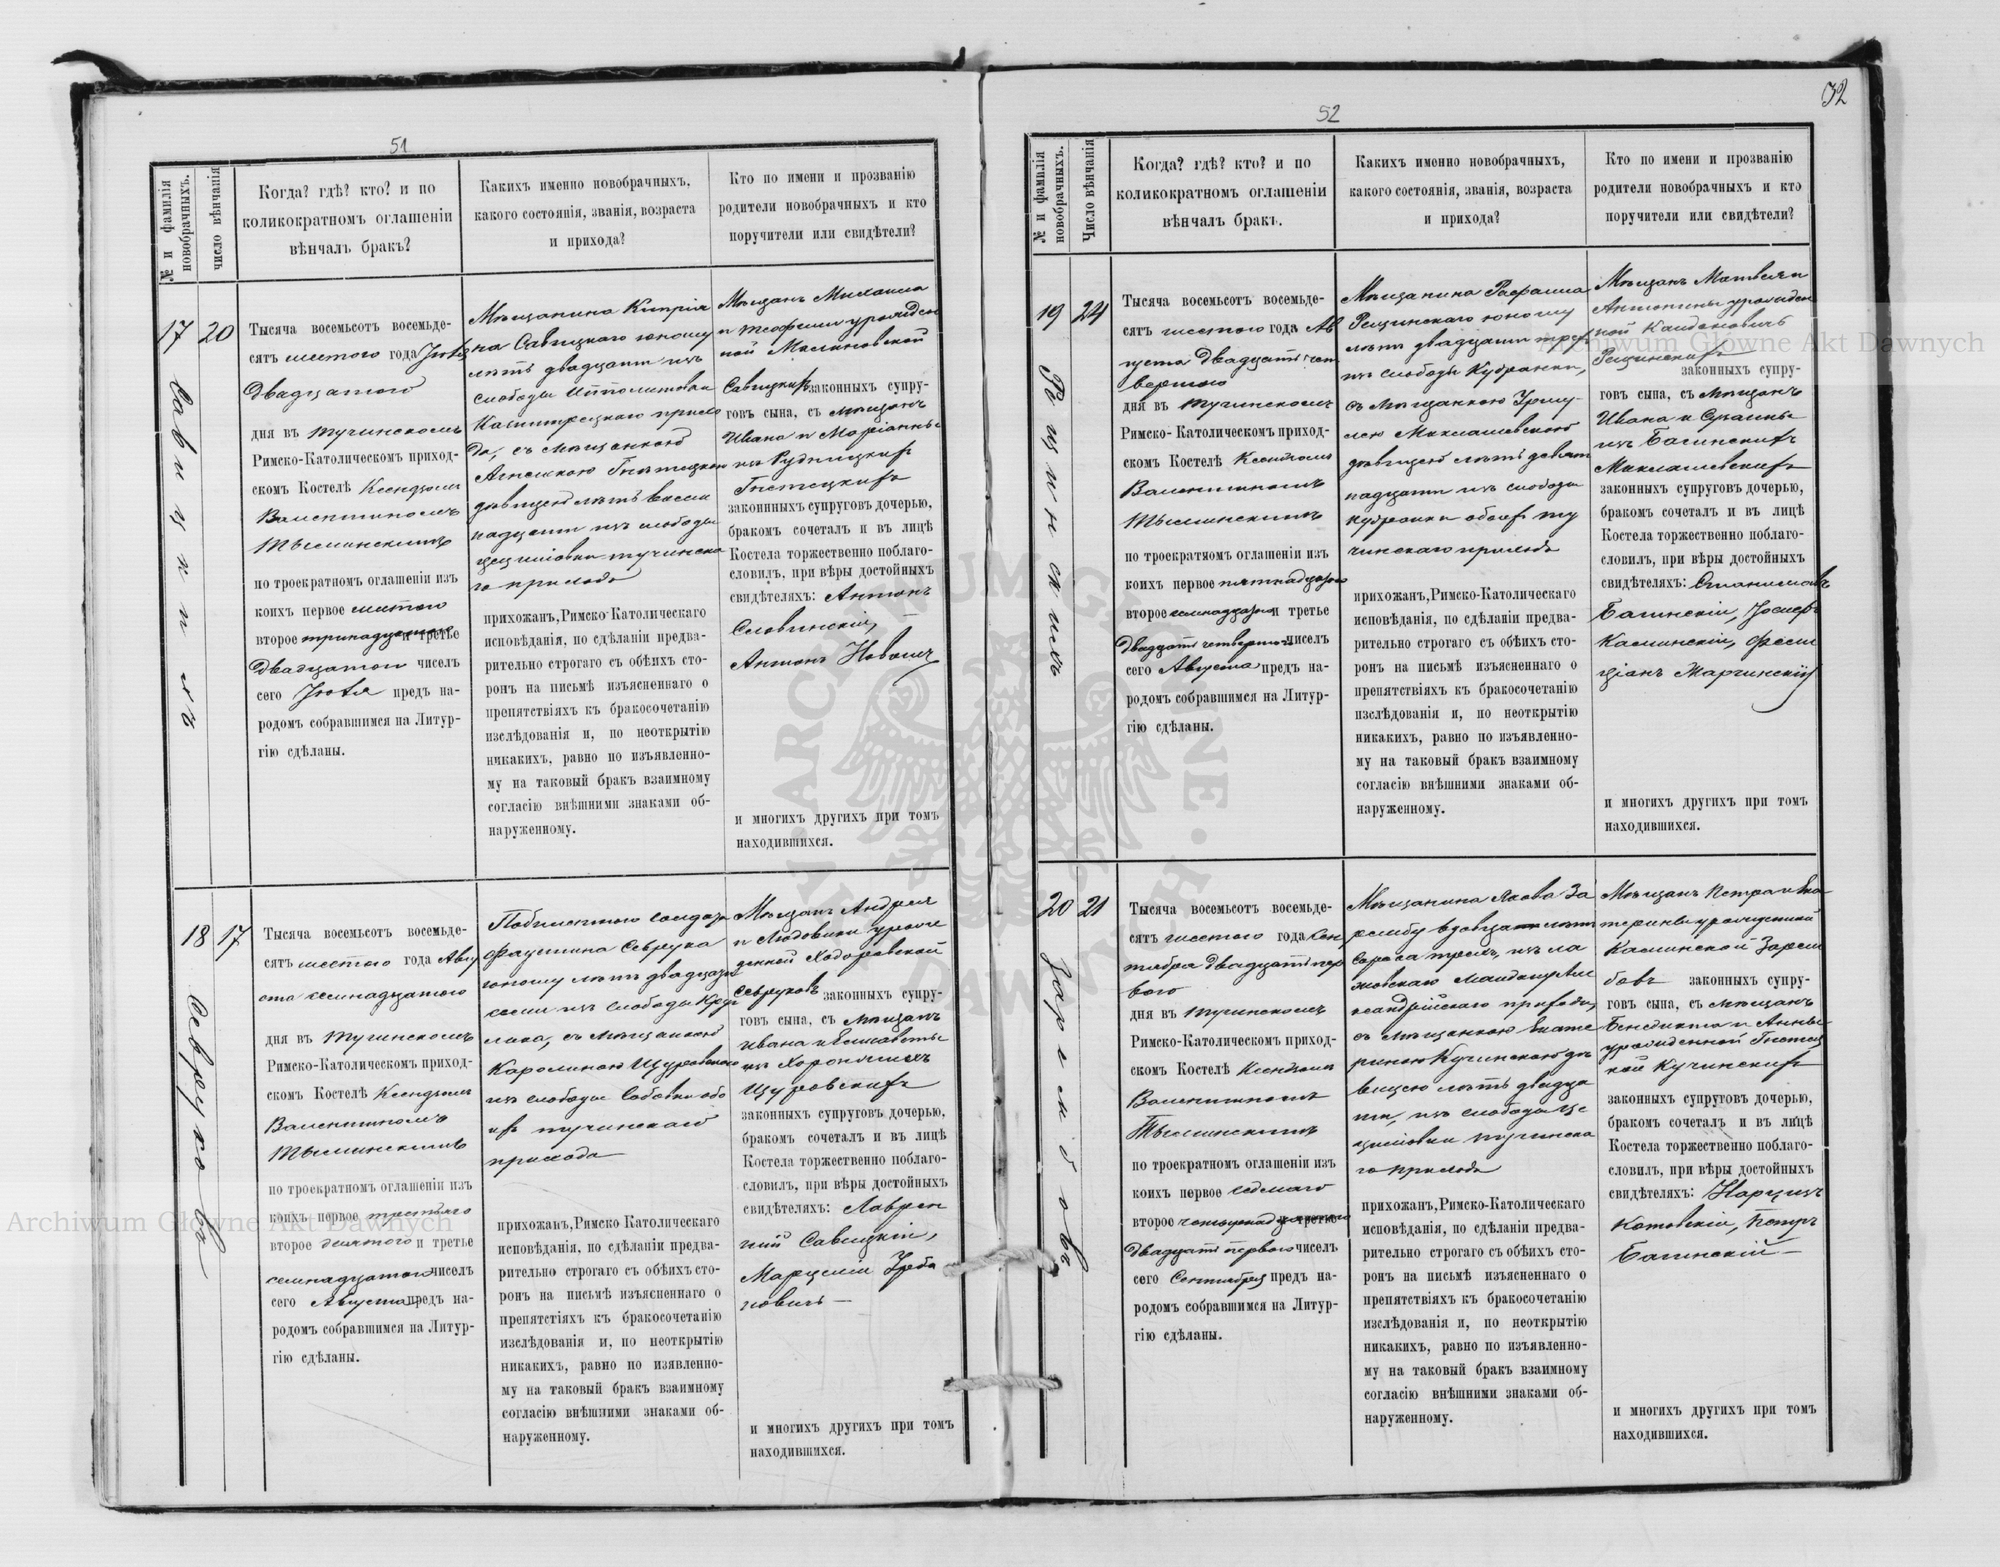 51
№ и фамилія новобрачныхъ.
число вѣнчанія
Когда? гдѣ? кто? и по
коликократномъ оглашеніи
вѣнчалъ бракъ?
Какихъ именно новобрачныхъ,
какого состоянія, званія, возраста
и прихода?
Кто по имени и прозванію
родители новобрачныхъ и кто
поручители или свидѣтели?
17
Савицкихъ
20
Тысяча восемьсотъ восемьде-
сятъ шестого года Іюля
Двадцатого
дня въ Тучинскомъ
Римско-Католическомъ приход-
скомъ Костелѣ Ксендзомъ
Валентиномъ
Тысминскимъ
по троекратномъ оглашеніи изъ
коихъ первое шестого
второе тринадцатого и третье
Двадцатого чиселъ
сего Іюля предъ на-
родомъ собравшимся на Литур-
гію сдѣланы.
Мѣщанина Кипрія
на Савицкого юношу
лѣтъ двадцати изъ
слободы Ипполитовки
прихо
да, съ мѣщанкою
дѣвицею лѣтъ восем
надцати изъ слободы
Цецилiовки Тучинска
го прихода
прихожанъ, Римско-Католическаго
исповѣданія, по сдѣланіи предва-
рительно строгаго съ обѣихъ сто-
ронъ на письмѣ изъясненнаго о
препятствіяхъ къ бракосочетанію
изслѣдованія и, по неоткрытію
никакихъ, равно по изъявленно-
му на таковый бракъ взаимному
согласію внѣшними знаками об-
наруженному.
Мѣщанъ Михаила
и Теофили урожден
ной Малиновской
Савицкихъ законныхъ супру-
говъ сына, съ мѣщанъ
Ивана и Маріанны
изъ Рудницкихъ
Гнетецкихъ
законнныхъ супруговъ дочерью,
бракомъ сочеталъ и въ лицѣ
Костела торжественно поблаго-
словилъ, при вѣры достойныхъ
свидѣтеляхъ: Антонъ
Словинскій,
Антонъ Новакъ
и многихъ другихъ при томъ
находившихся.
18
Севруковъ
17
Тысяча восемьсотъ восемьде-
сятъ шестого года Авгу
ста семнадцатого
дня въ Тучинскомъ
Римско-Католическомъ приход-
скомъ Костелѣ Ксендзомъ
Валентиномъ
Тысминскимъ
по троекратномъ оглашеніи изъ
коихъ первое третьяго
второе десятого и третье
семнадцатого чиселъ
сего Августа предъ на-
родомъ собравшимся на Литур-
гію сдѣланы.
солдата
Фаустина Севрука
юношу лѣтъ двадцати
семи изъ слободы
съ мѣщанкою
Каролиною Щуровскою
изъ слободы обо
ихъ Тучинскаго
прихода
прихожанъ, Римско Католическаго
исповѣданія, по сдѣланіи предва-
рительно строгаго съ обѣихъ сто-
ронъ на письмѣ изъясненнаго о
препятстіяхъ къ бракосочетанію
изслѣдованія и, по неоткрытію
никакихъ, равно по изявленно-
му на таковый бракъ взаимному
согласію внѣшними знаками об-
наруженному.
Мѣщанъ Андрея
и Людовики урож
денной Ходоровской
Севруковъ законныхъ супру-
говъ сына, съ мѣщанъ
Ивана и Елисаветы
изъ
Щуровскихъ
законныхъ супруговъ дочерью,
бракомъ сочеталъ и въ лицѣ
Костела торжественно поблаго-
словилъ, при вѣры достойныхъ
свидѣтеляхъ: Лаврен
тій Савицкій,
Марцелій Урба
новичъ
и многихъ другихъ при томъ
находившихся.
52
32
№ и фамилія новобрачныхъ.
Число вѣнчанія
Когда? гдѣ? кто? и по
коликократномъ оглашеніи
вѣнчалъ бракъ.
Какихъ именно новобрачныхъ,
какого состоянія, званія, возраста
и прихода?
Кто по имени и прозванію
родители новобрачныхъ и кто
поручители или свидѣтели?
19
24
Тысяча восемьсотъ восемьде-
сятъ шестого года Ав
густа Двадцать чет
вертого
дня въ Тучинскомъ
Римско-Католическомъ приход-
скомъ Костелѣ Ксендзомъ
Валентиномъ
Тысминскимъ
по троекратяомъ оглашеніи изъ
коихъ первое пятнадцатого
второе семнадцатого и третье
Двадцать четвертого чиселъ
сего Августа предъ на-
родомъ собравшимся на Литур-
гію сдѣланы.
Мѣщанина Рафаила
Рещинскаго юношу
лѣтъ двадцати трех
изъ слободы Кудранки,
съ мѣщанкою Уршу-
лею Миклашевскою
дѣвицею лѣтъ девят
надцати изъ слободы
Кудранки обоихъ Ту
чинскаго прихода
прихожанъ, Римско-Католическаго
исповѣданія, по сдѣланіи предва-
рительно строгаго съ обѣихъ сто-
ронъ на письмѣ изъясненнаго о
препятствіяхъ къ бракосочетанію
изслѣдованія и, по неоткрытію
никакихъ, равно по изъявленно-
му на таковый бракъ взаимному
согласію внѣшними знаками об-
наруженному.
Мѣщанъ Матвея и
Антонины урожден
ной Кандановичъ
Рещинскихъ
законныхъ супру-
говъ сына, съ мѣщанъ
Ивана и
изъ Багинскихъ
Миклашевскихъ
законныхъ супруговъ дочерью,
бракомъ сочеталъ и въ лицѣ
Костела торжественно поблаго-
словилъ, при вѣры достойныхъ
свидѣтеляхъ: Станиславъ
Багинскій, Іосифъ
Калинскій, Фели
ціанъ Марчинскій
и многихъ другихъ при томъ
находившихся.
20
Зарембовъ
21
Тысяча восемьсотъ восемьде-
сятъ шестого года Сен
тября Двадцать пер
вого
дня въ Тучинскомъ
Римско-Католическомъ приход-
скомъ Костелѣ Ксендзомъ
Валентиномъ
Тысминскимъ
по троекратномъ оглашеніи изъ
коихъ первое седмаго
второе четырнадцатого и третье
Двадцать первого чиселъ
сего Сентября предъ на-
родомъ собравшимся на Литур-
гію сдѣланы.
Мѣщанина Якова За
рембу вдовца лѣтъ
сорока трехъ, изъ
прихода,
съ мѣщанкою Екате
риною Кучинскою дѣ
вицею лѣтъ двадца
ти, изъ слободы Це
циліовки Тучинска
го прихода
прихожанъ, Римско-Католическаго
исповѣданія, по сдѣланіи предва-
рительно строгаго съ обѣихъ сто-
ронъ на письмѣ изъясненнаго о
препятствіяхъ къ бракосочетанію
изслѣдованія и, по неоткрытію
никакихъ, равно по изъявленно-
му на таковый бракъ взаимному
согласію внѣшними знаками об-
наруженному.
Мѣщанъ Петра и Ека
терины урожденной
Калинской Зарем
бовъ законныхъ супру-
говъ сына, съ мѣщанъ
Бенедикта и Анны
урожденной Гнетец
кой Кучинскихъ
законныхъ супруговъ дочерью,
бракомъ сочеталъ и въ лицѣ
Костела торжественно поблаго-
словилъ, при вѣры достойныхъ
свидѣтеляхъ: Нарцизъ
Котовскій, Петръ
Багинскій
и многихъ другихъ при томъ
находившихся.
Archiwum Główne Akt Dawnych
Archiwum Główne Akt Dawnych
ARCHIWUM GŁÓWNE AKT DAWNYCH W